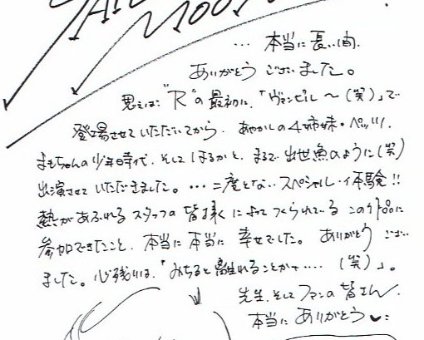 … 本当に長い間、
ありがとうございました。
思えば "R" の最初に、「ヴァンピル〜(笑)」で
登場させていただいてから、あやかしの4姉妹・ベッツィ、
まもちゃんの少年時代、そしてほたると、まるで出世魚のように(笑)
出演させていただきました。… 二度とないスペシャル・イ体験!!
熱があふれるスタッフの皆様によってつくられているこの作品に
参加できたこと、本当に本当に幸せでした。ありがとうござい
ました。心残りは、「みちると離れることか…‥(笑)」。
先生、そしてファンの皆さん、
本当にありがとう